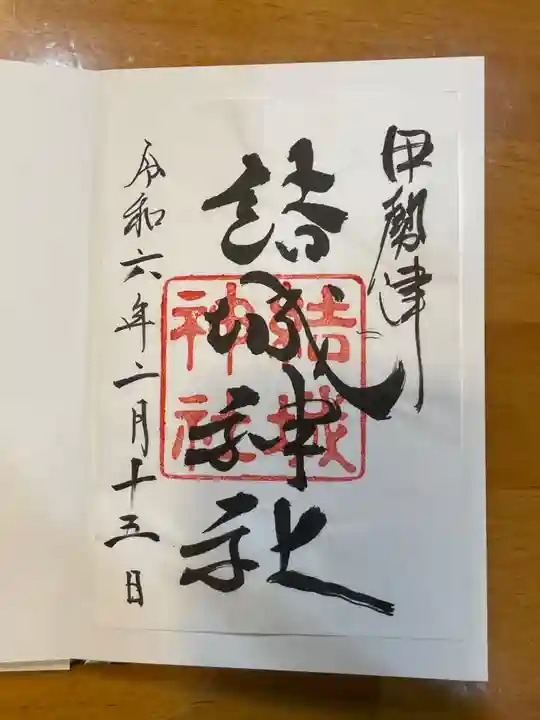 伊勢津
結城神社
結城
神社
令和六年二月十五日